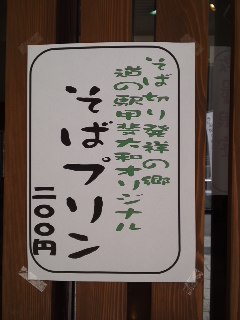 そば切り発祥の郷
道の駅甲斐大和オリジナル
そばプリン
二〇〇円